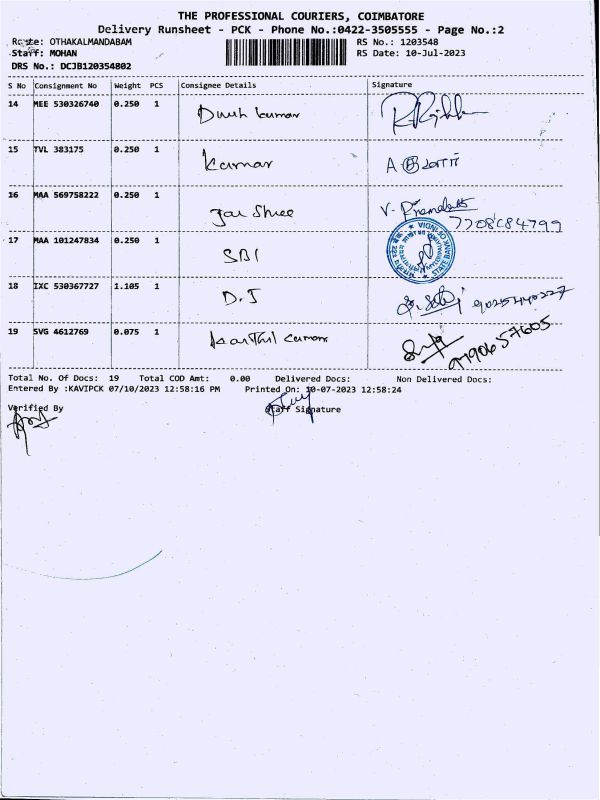 THE PROFESSIONAL COURIERS, COIMBATORE
Delivery Runsheet - PCK - Phone No.:0422-3505555 - Page No.:2
Route: OTHAKALMANDABAM
RS No.: 1203548
Staff: MOHAN
RS Date: 10-Jul-2023
DRS No.: DCJB120354802
S No Consignment No Weight PCS Consignee Details Signature
14 MEE 530326740 0.250 1 kumar
15 TVL 383175 0.250 1 kumar
16 MAA 569758222 0.250 1 Jai Shree V.
17 MAA 101247834 0.250 1 SBI STATE BANK OF INDIA
18 IXC 530367727 1.105 1 D.J
19 SVG 4612769 0.075 1
Total No. Of Docs: 19 Total COD Amt: 0.00 Delivered Docs: Non Delivered Docs:
Entered By :KAVIPCK 07/10/2023 12:58:16 PM Printed On: 10-07-2023 12:58:24
Verified By Staff Signature